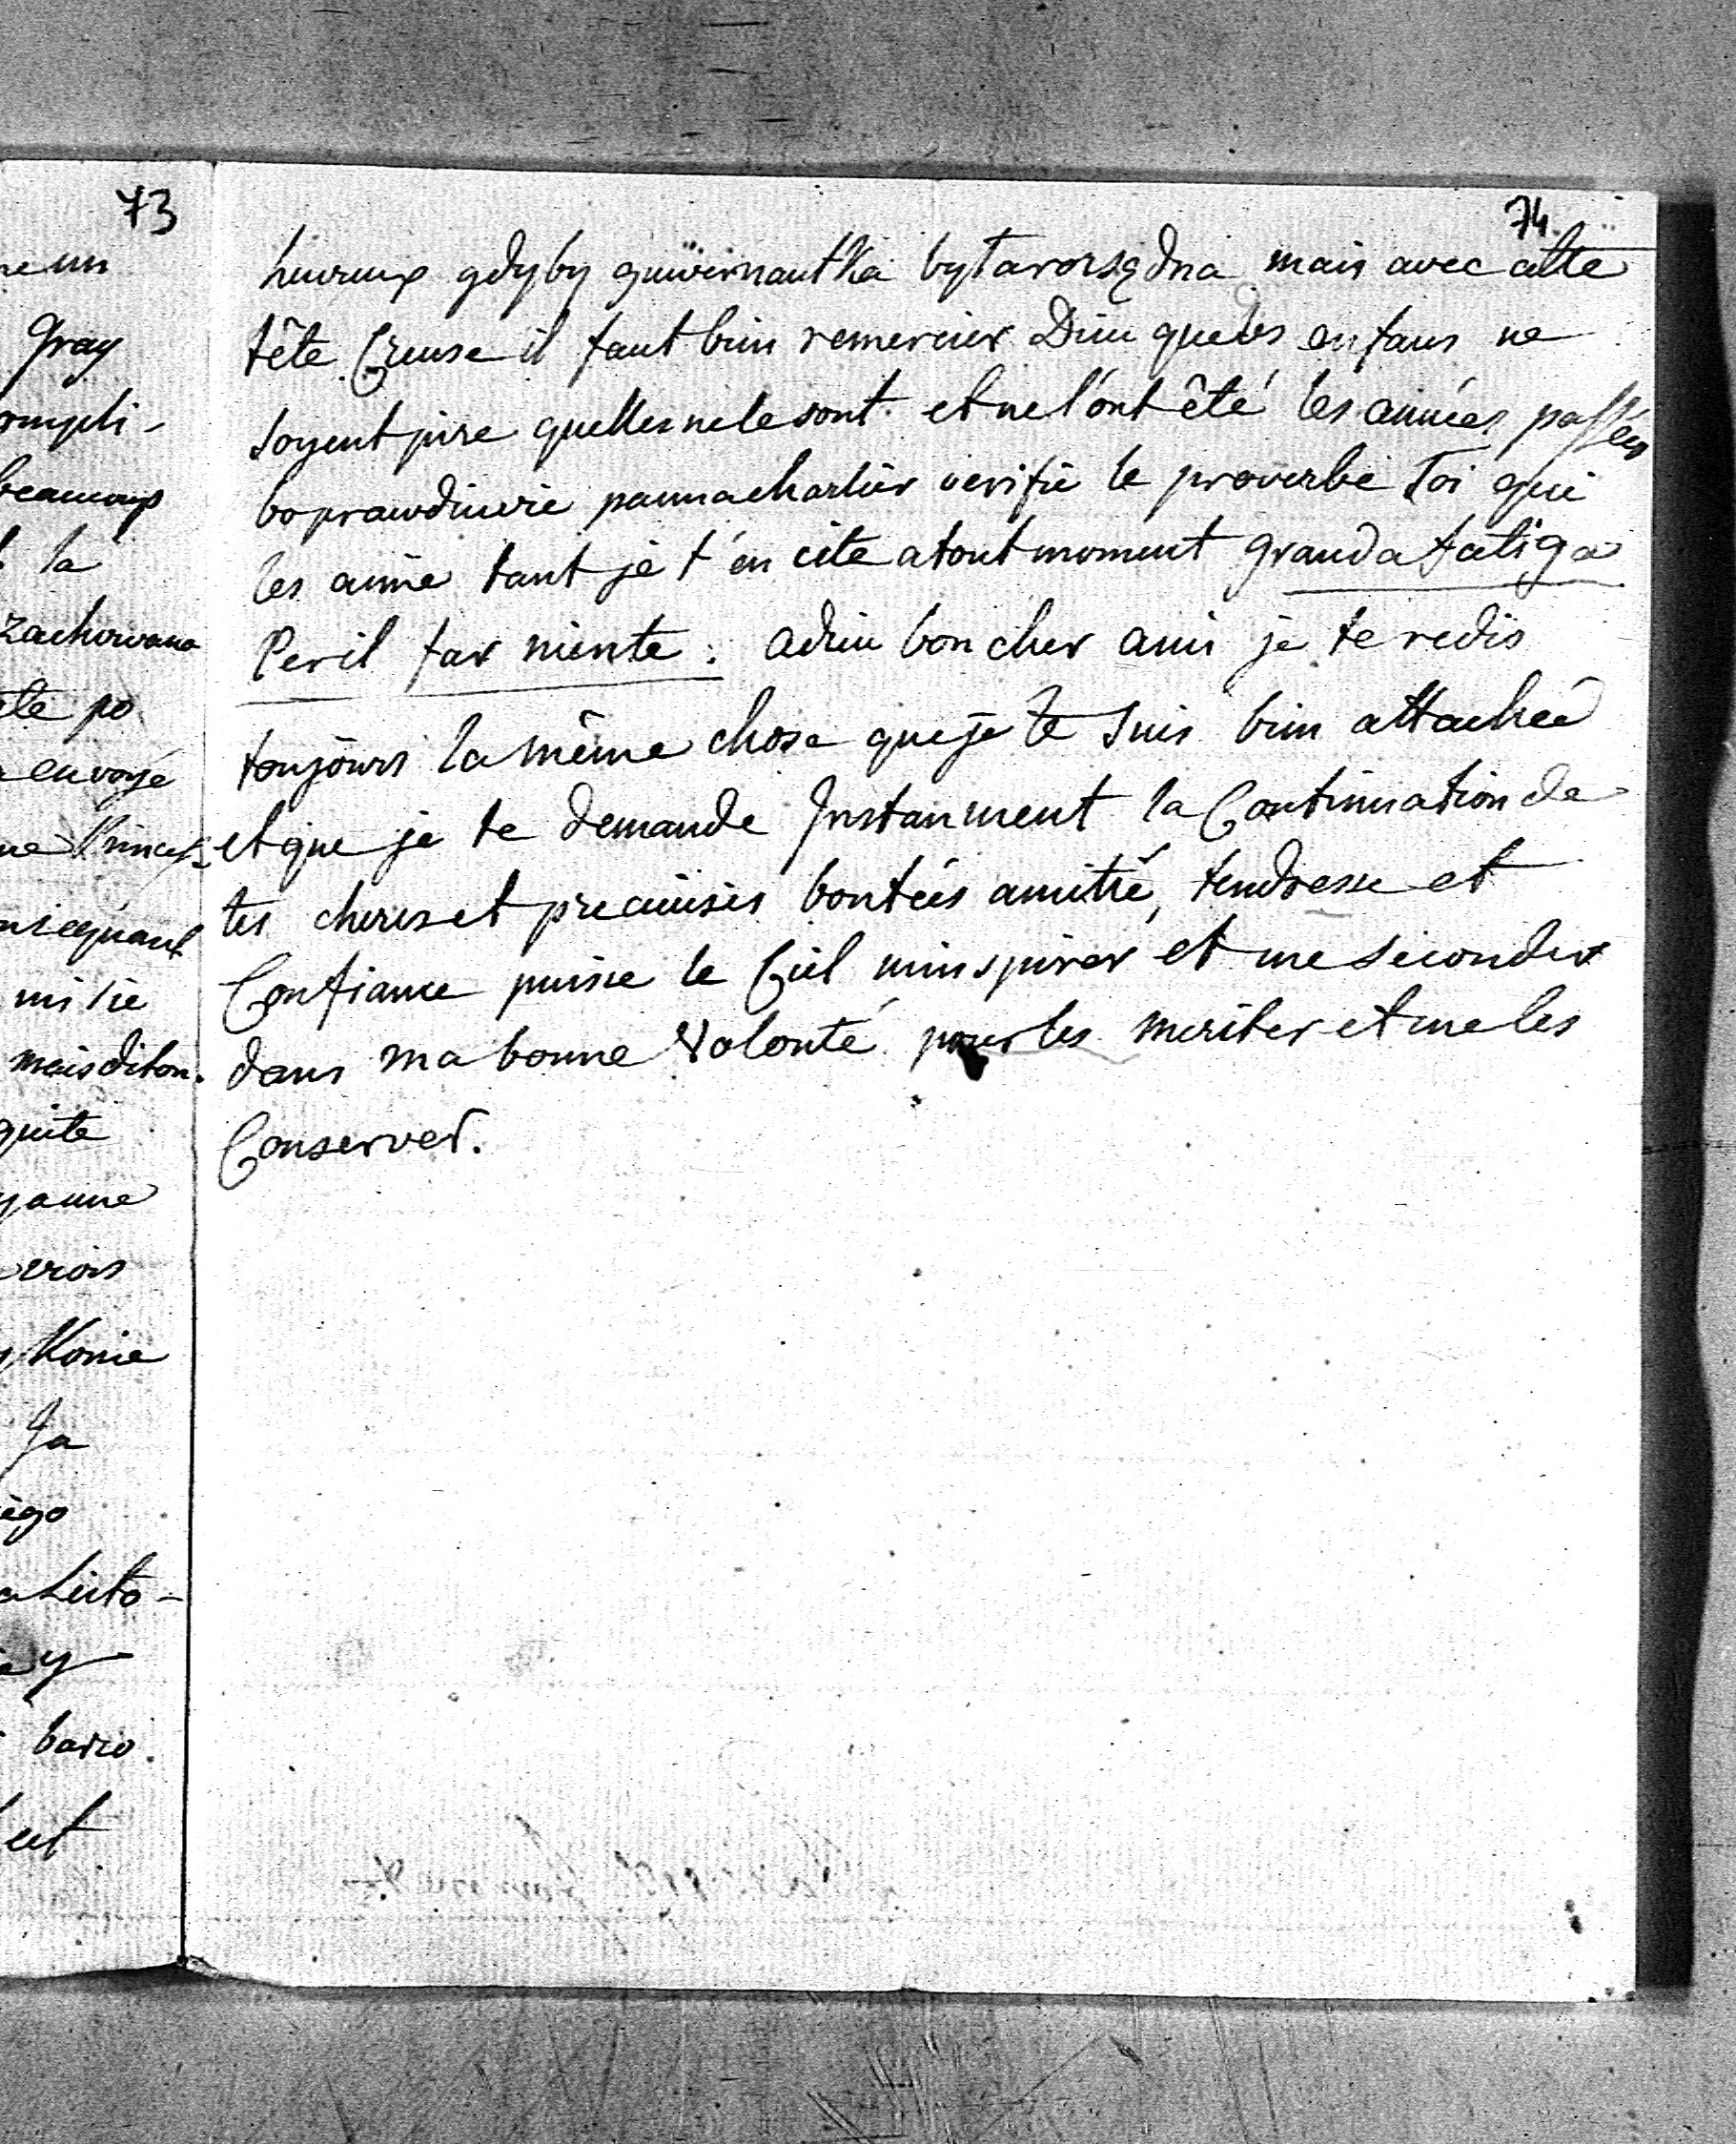 73
ne un
Gray
ompli-
beaucoup
la
zachowana
ete po
envoyé
ne Princes-
nsequant
misie
mais diton.
quite
yanne
vrois
Konie
Ja
iego
a Lieto-
y
bario.
est
74.
heureux gdyby guwernantka byłarorsędna mais avec cette
tête Creuse il faut bien remercier Dieu que des enfans ne
soyent pire quelles ne le sont. et ne l'ont êté les années passées
boprawdiwie panna charlier verifie le proverbe Toi qui
les aime tant je t'en cite a tout moment granda fatiga
Per il far niente: adieu bon cher ami je te redis
toujours la même chose que je te suis bien attachée
et que je te demande Instanment la Continuation de
tes cheres et precieuses bontées amitié, tendresse et
Confiance puisse le Ciel minspirer et me seconder
dans ma bonne volonté pour les meriter et me les
Conserver.